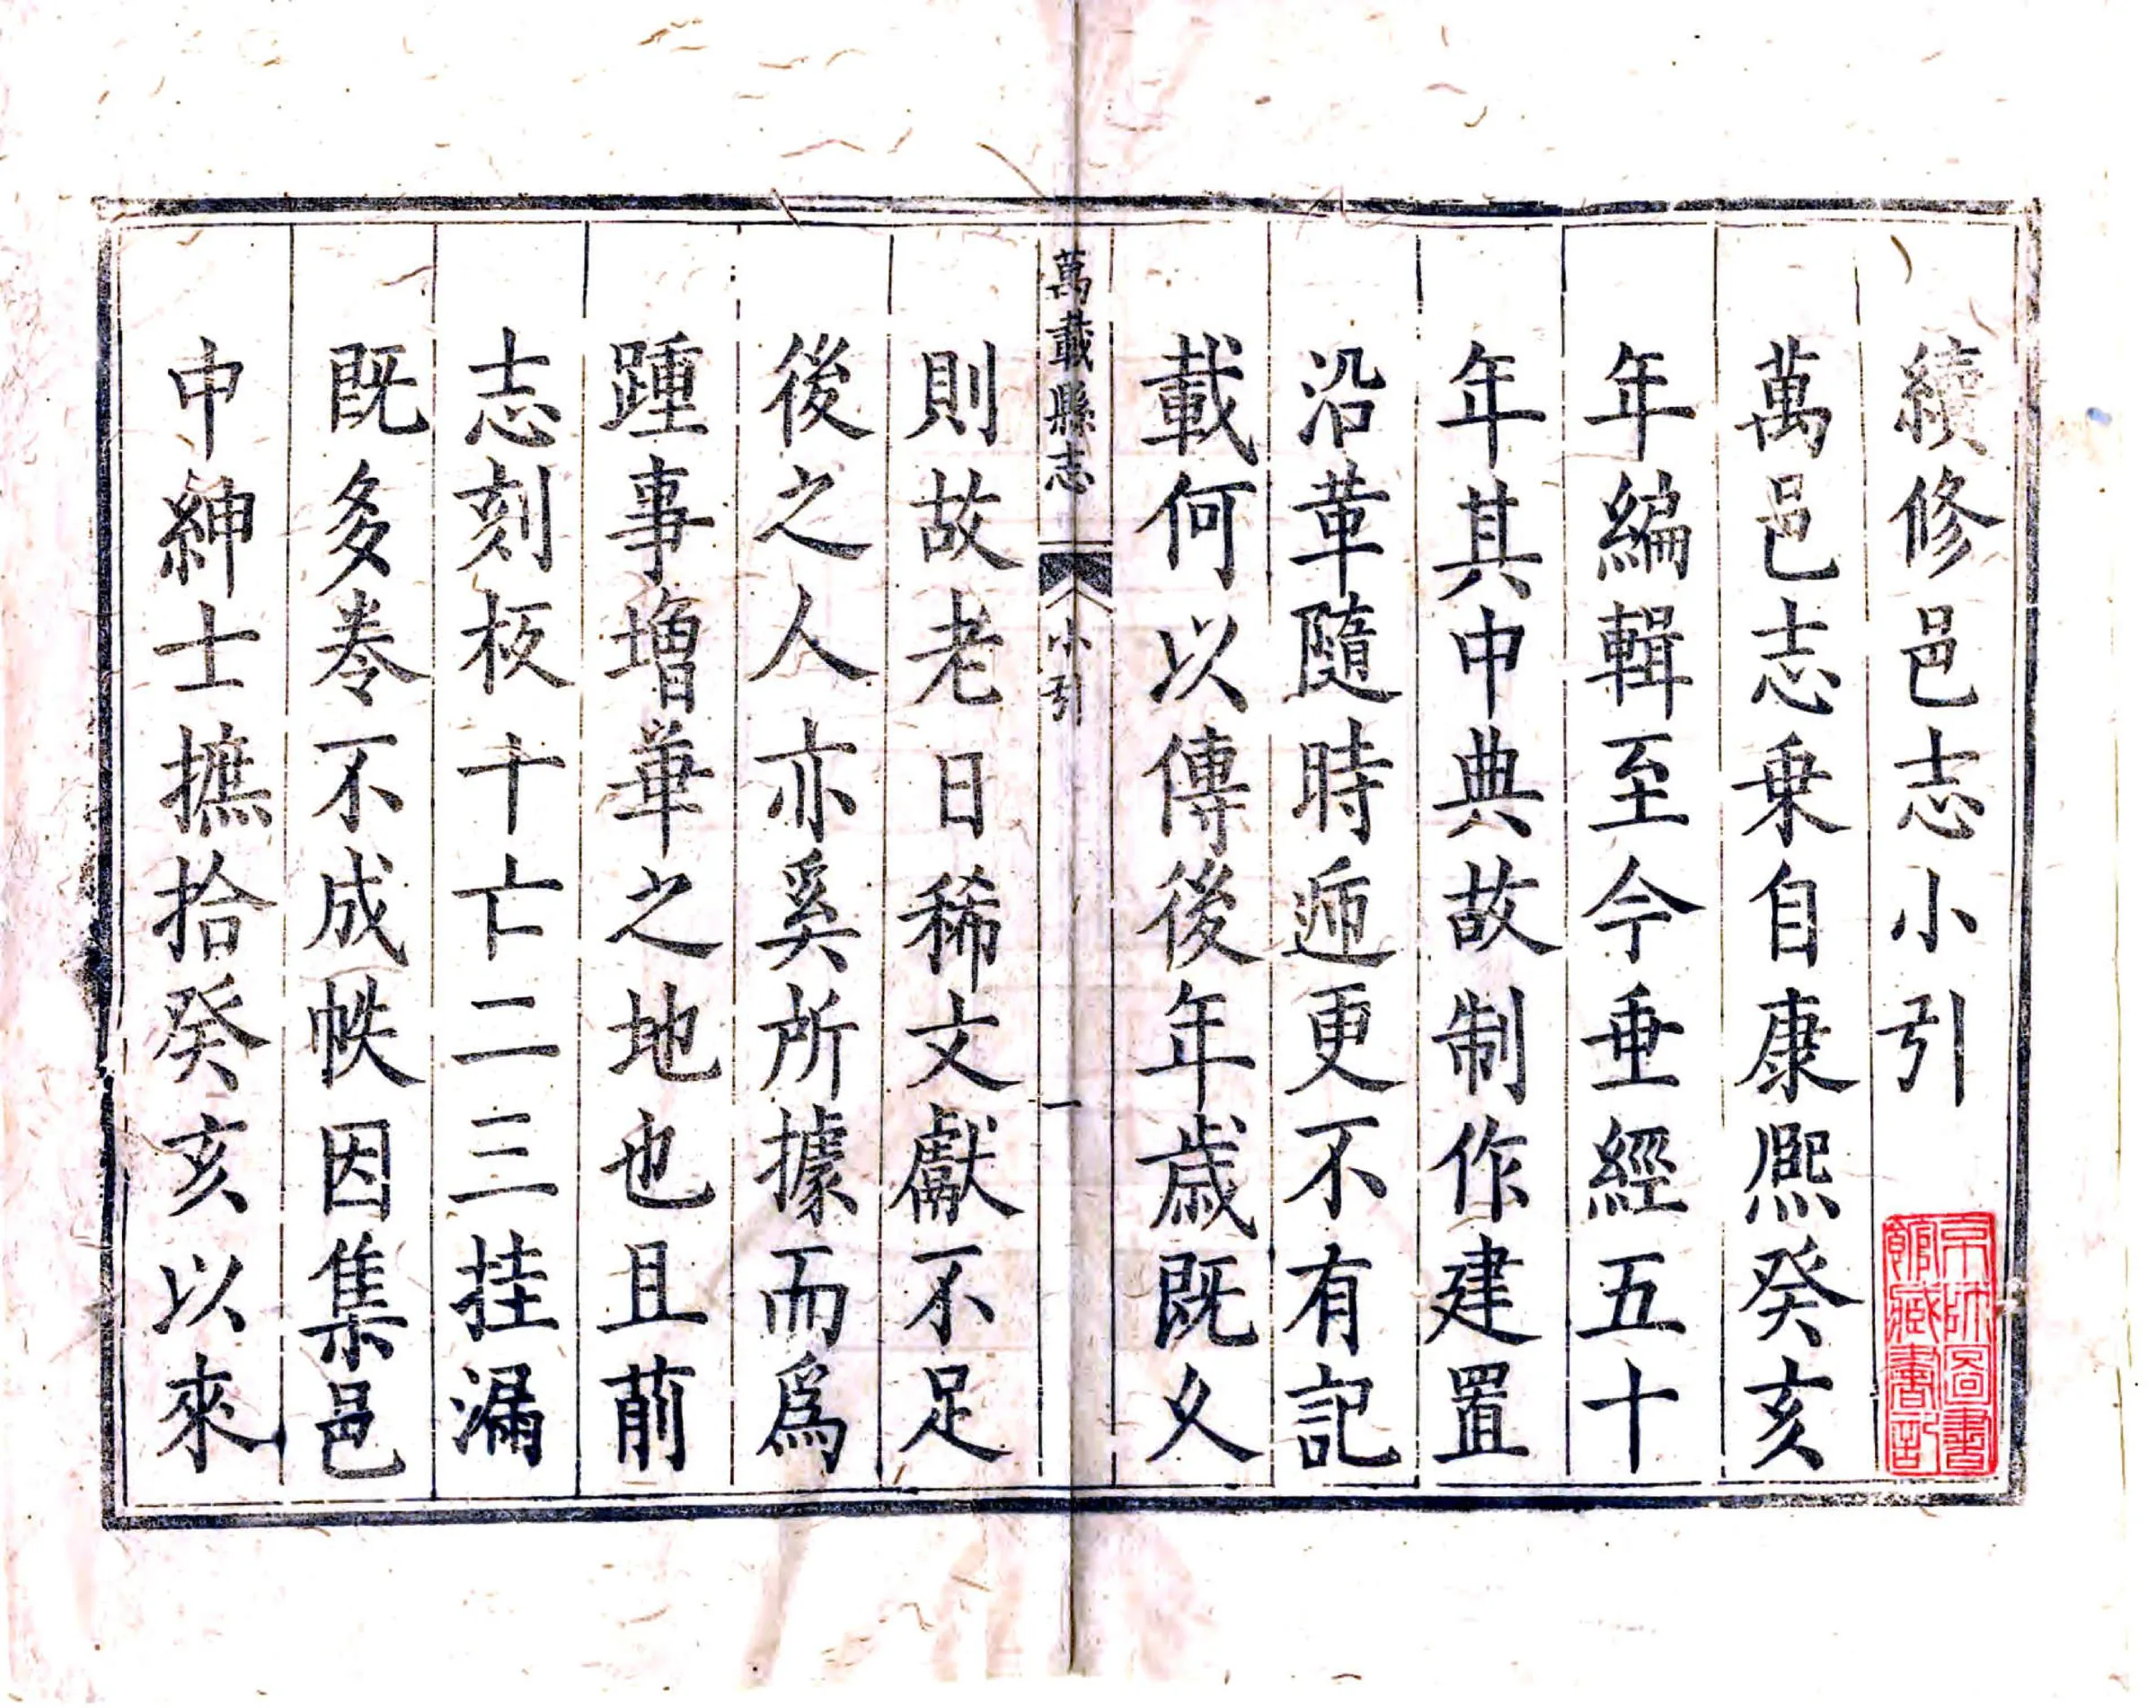 續修邑志小引
萬邑志乗自康熈癸亥
年編輯至今垂經五十
年其中典故制作建置
沿革隨時遞更不有記
載何以傳後年歳既久
萬載縣志
小引
一
則故老日稀文獻不足
後之人亦奚所據而爲
踵事增華之地也且前
志刻板十亡二三挂漏
既多卷不成帙因集邑
中紳士摭拾癸亥以來
京師圖書
館藏書記